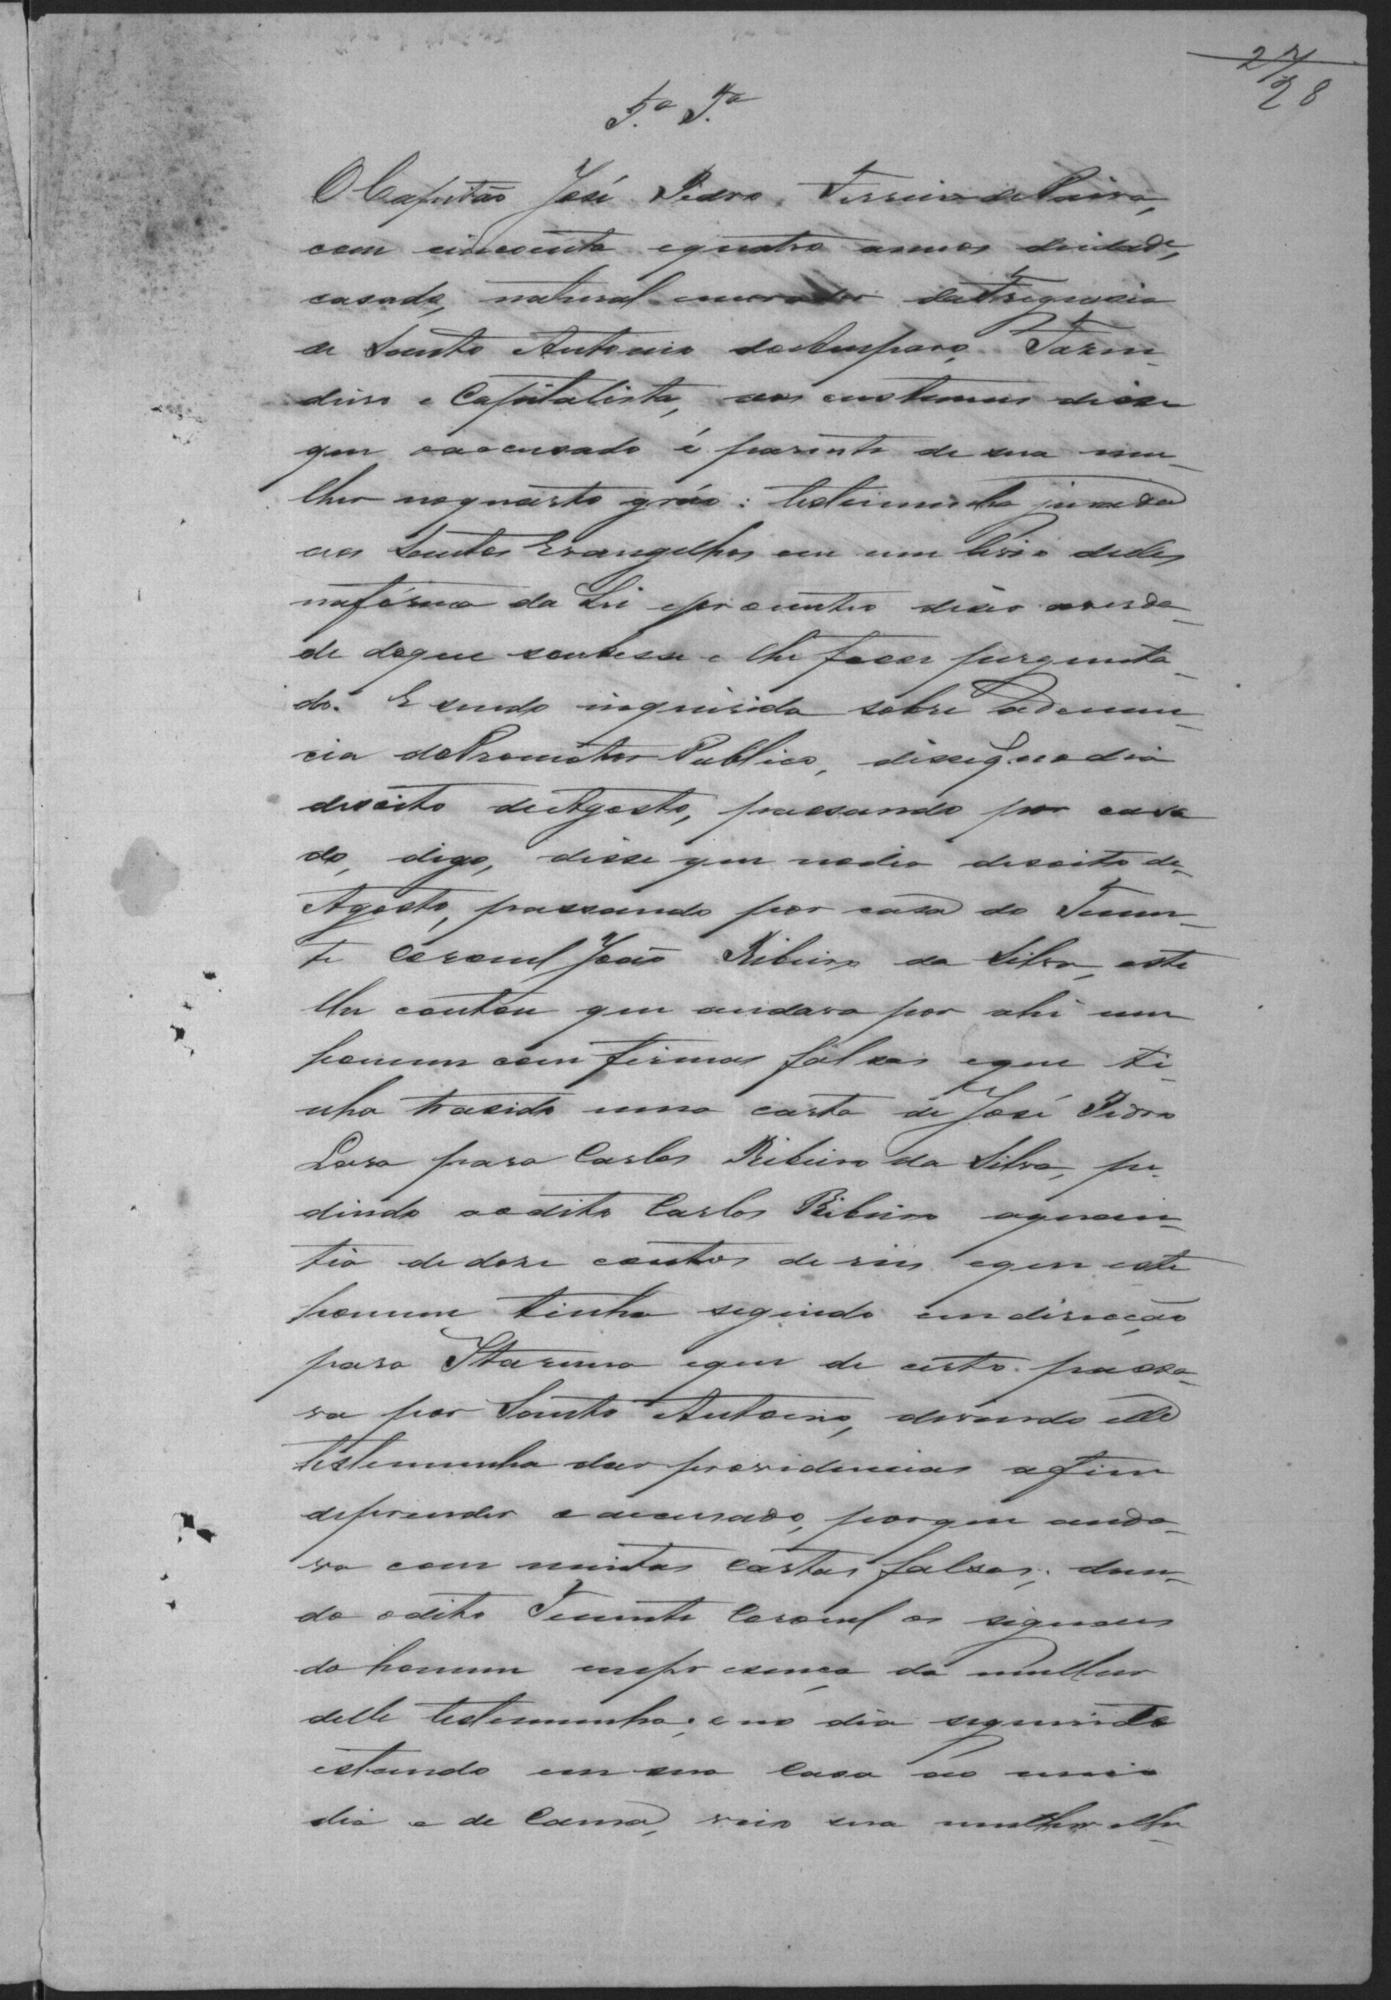 27
28
5.ª T.ª
O Capitão José Pedro Ferreira de Paiva,
com cincoenta e quatro annos de idade,
casado, natural e morador da Freguesia
de Santo Antonio do Amparo, Fazen-
deiro e Capitalista, aos custumes disse
que o accusado é parente de sua mu-
lher no quarto gráo: testemunha jurada
aos Santos Evangelhos em um livro delles
na fórma da Lei e prometteo diser a verda-
de do que soubesse e lhe fosse pergunta-
do. E sendo inquirida sobre a denun-
cia do Promotor Publico, disse q. no dia
desoito de Agosto, passando por casa
do, digo, disse que no dia desoito de
Agosto, passando por casa do Tenen-
te Coronel João Ribeiro da Silva, este
lhe contou que andava por ahi um
homem com firmas falsas e que ti-
nha trasido uma carta de José Pedro
Lara para Carlos Ribeiro da Silva, pe-
dindo ao dito Carlos Ribeiro a quan-
tia de dose contos de reis e que este
homem tinha seguido em direcção
para Itaruna e que de certo passa-
va por Santo Antonio, devendo elle
testemunha dar providencias a fim
de prender o accusado, porque anda-
va com muitas cartas falsas; dan-
do o dito Tenente Coronel os signaes
do homem em presença da mulher
delle testemunha; e no dia seguinte
estando em sua casa ao meio
dia e de cama, veio sua mulher lhe